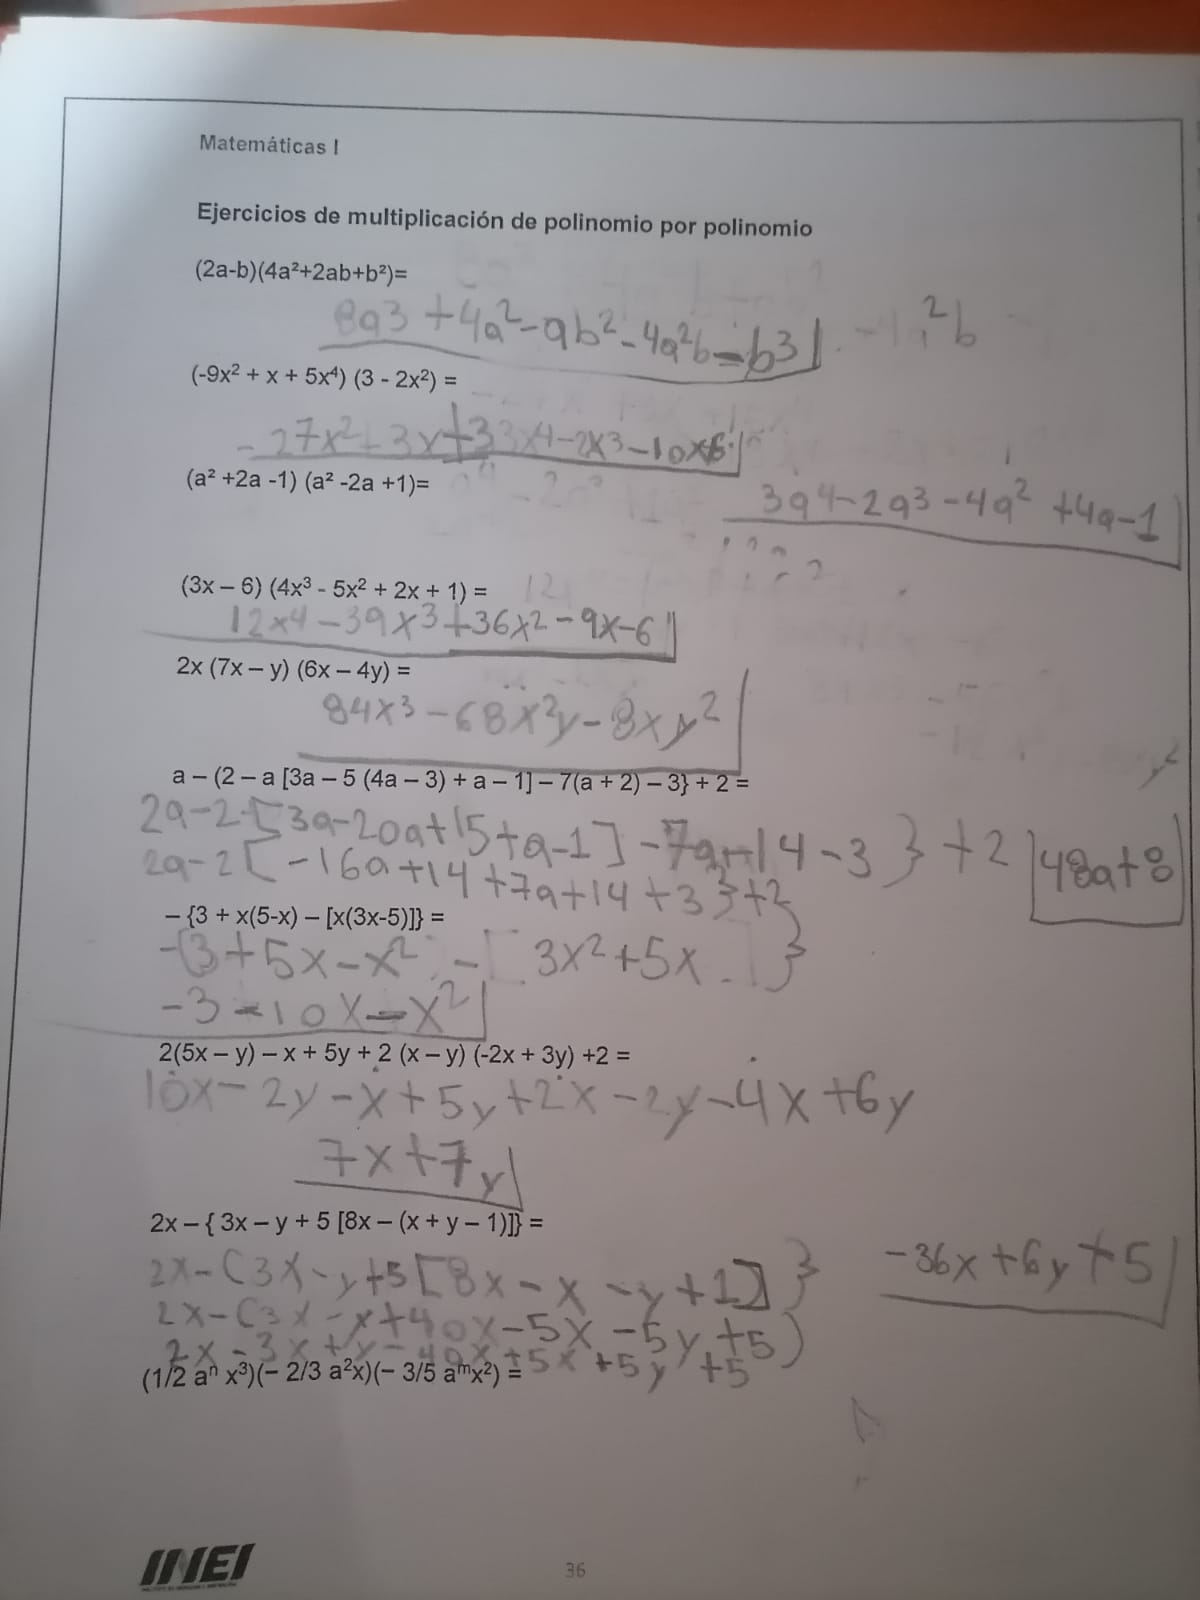 Matemáticas I
Ejercicios de multiplicación de polinomio por polinomio
(2a-b)(4a²+2ab+b²)=
8a3 +4a²-ab²-4a²b-b3
²b
(-9x² + x + 5x⁴) (3 - 2x²) =
-27x²+3x+33x4-2x3-10x6
(a² +2a -1) (a² -2a +1)=
3a4-2a3-4a² +4a-1
(3x – 6) (4x³ - 5x² + 2x + 1) =
12x4-39x3+36x2-9x-6
2x (7x – y) (6x – 4y) =
84x3-68x²y-8xy²
a – (2 – a [3a – 5 (4a – 3) + a – 1] – 7(a + 2) – 3} + 2 =
2a-2-[3a-20a+15+a-1]-7a+14-3}+2
48a+8
2a-2[-16a+14+7a+14+3}+2
– {3 + x(5-x) – [x(3x-5)]} =
-(3+5x-x² -[3x2+5x]}
-3-10x-x2
2(5x – y) – x + 5y + 2 (x – y) (-2x + 3y) +2 =
10x-2y-x+5y+2x-2y-4x+6y
7x+7y
2x – { 3x – y + 5 [8x – (x + y – 1)]} =
2x-(3x-y+5[8x-x-y+1]}
-36x+6y+5
2x-(3x-x+40x-5x-5y+5)
2x-3x+y-40x+5x+5y+5
(1/2 aⁿ x³)(– 2/3 a²x)(– 3/5 aᵐx²) =
INEI
36